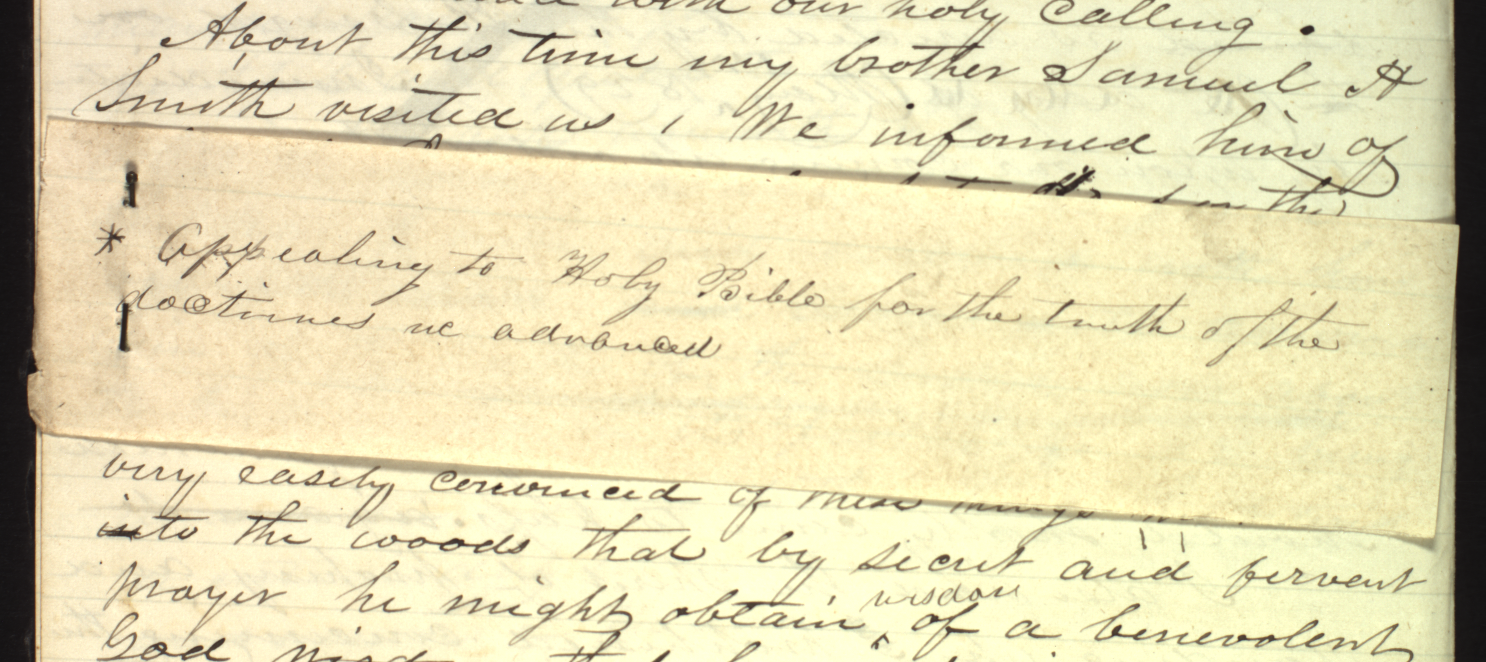 with our holy calling.
About this time my brother Samuel H
Smith visited us, We informed him of
* Appealing to Holy Bible for the truth of the
doctrines we advanced
very easily convinced of these things
into the woods that by secret and fervent
prayer he might obtain wisdom of a benevolent
God